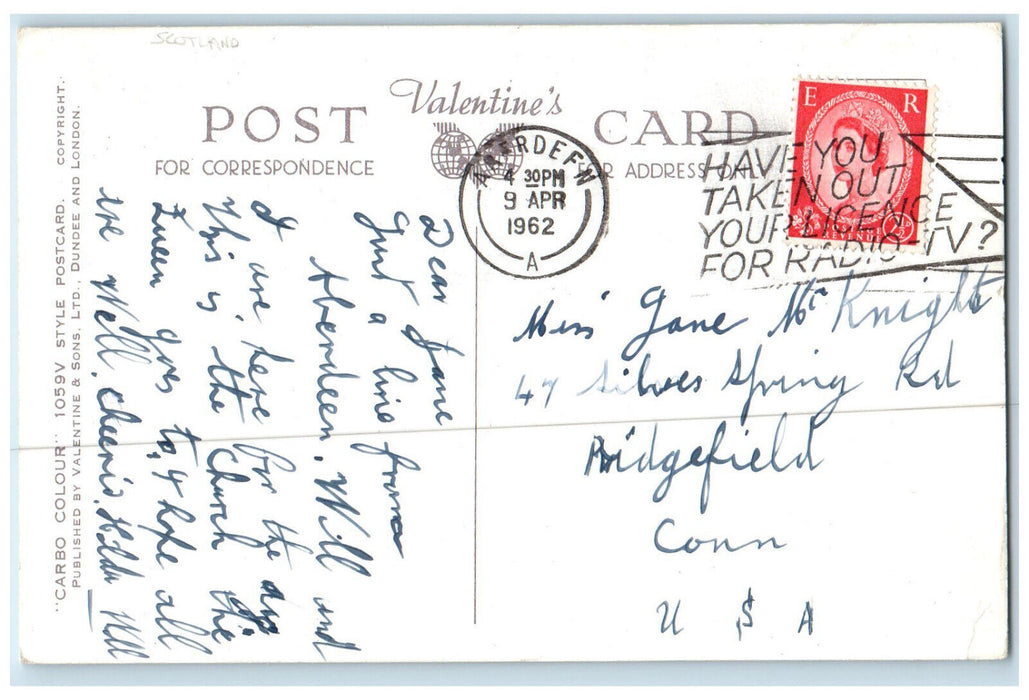 SCOTLAND
POST Valentine's CARD
FOR CORRESPONDENCE FOR ADDRESS ONLY
"CARBO COLOUR" 1059V STYLE POSTCARD. COPYRIGHT.
PUBLISHED BY VALENTINE & SONS, LTD., DUNDEE AND LONDON.
ABERDEEN
4 30PM
9 APR
1962
A
E R
HAVE YOU
TAKEN OUT
YOUR LICENCE
FOR RADIO-TV?
Dear Jane
Just a line from
Aberdeen, Will and
I are here for the day
This is the Church the
Queen goes to, I hope all
are well, cheerio, Hilda Will
Miss Jane McKnight
47 Silver Spring Rd
Ridgefield
Conn
U S A